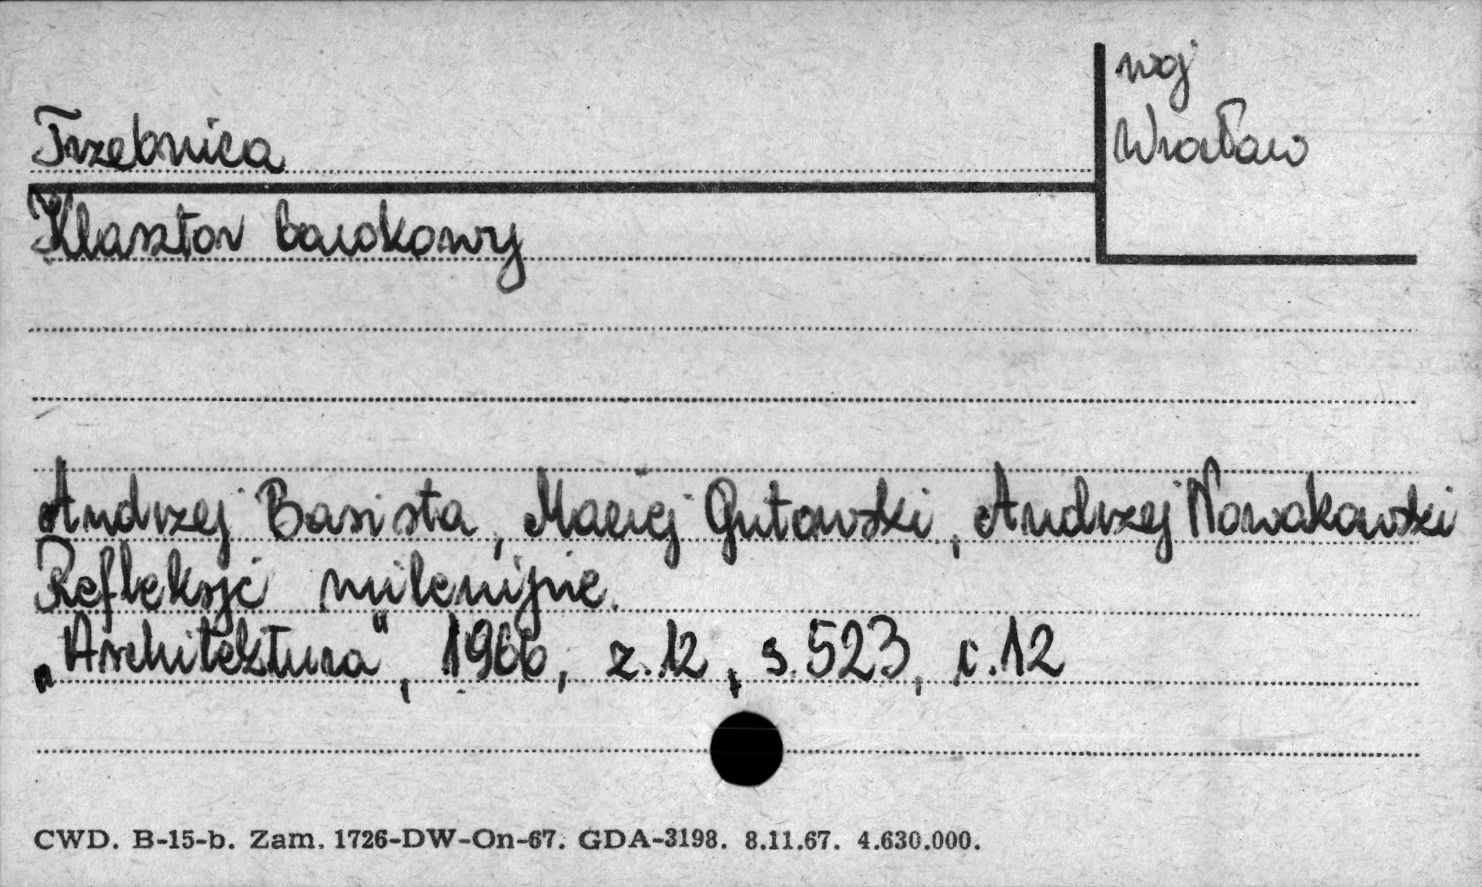 woj
Wrocław
Trzebnica
Klasztor barokowy
Andrzej Basista, Maciej Gutowski, Andrzej Nowakowski
Refleksje milenijne.
„Architektura", 1966, z.12, s.523, i.12
CWD. B-15-b. Zam. 1726-DW-On-67. GDA-3198. 8.11.67. 4.630.000.